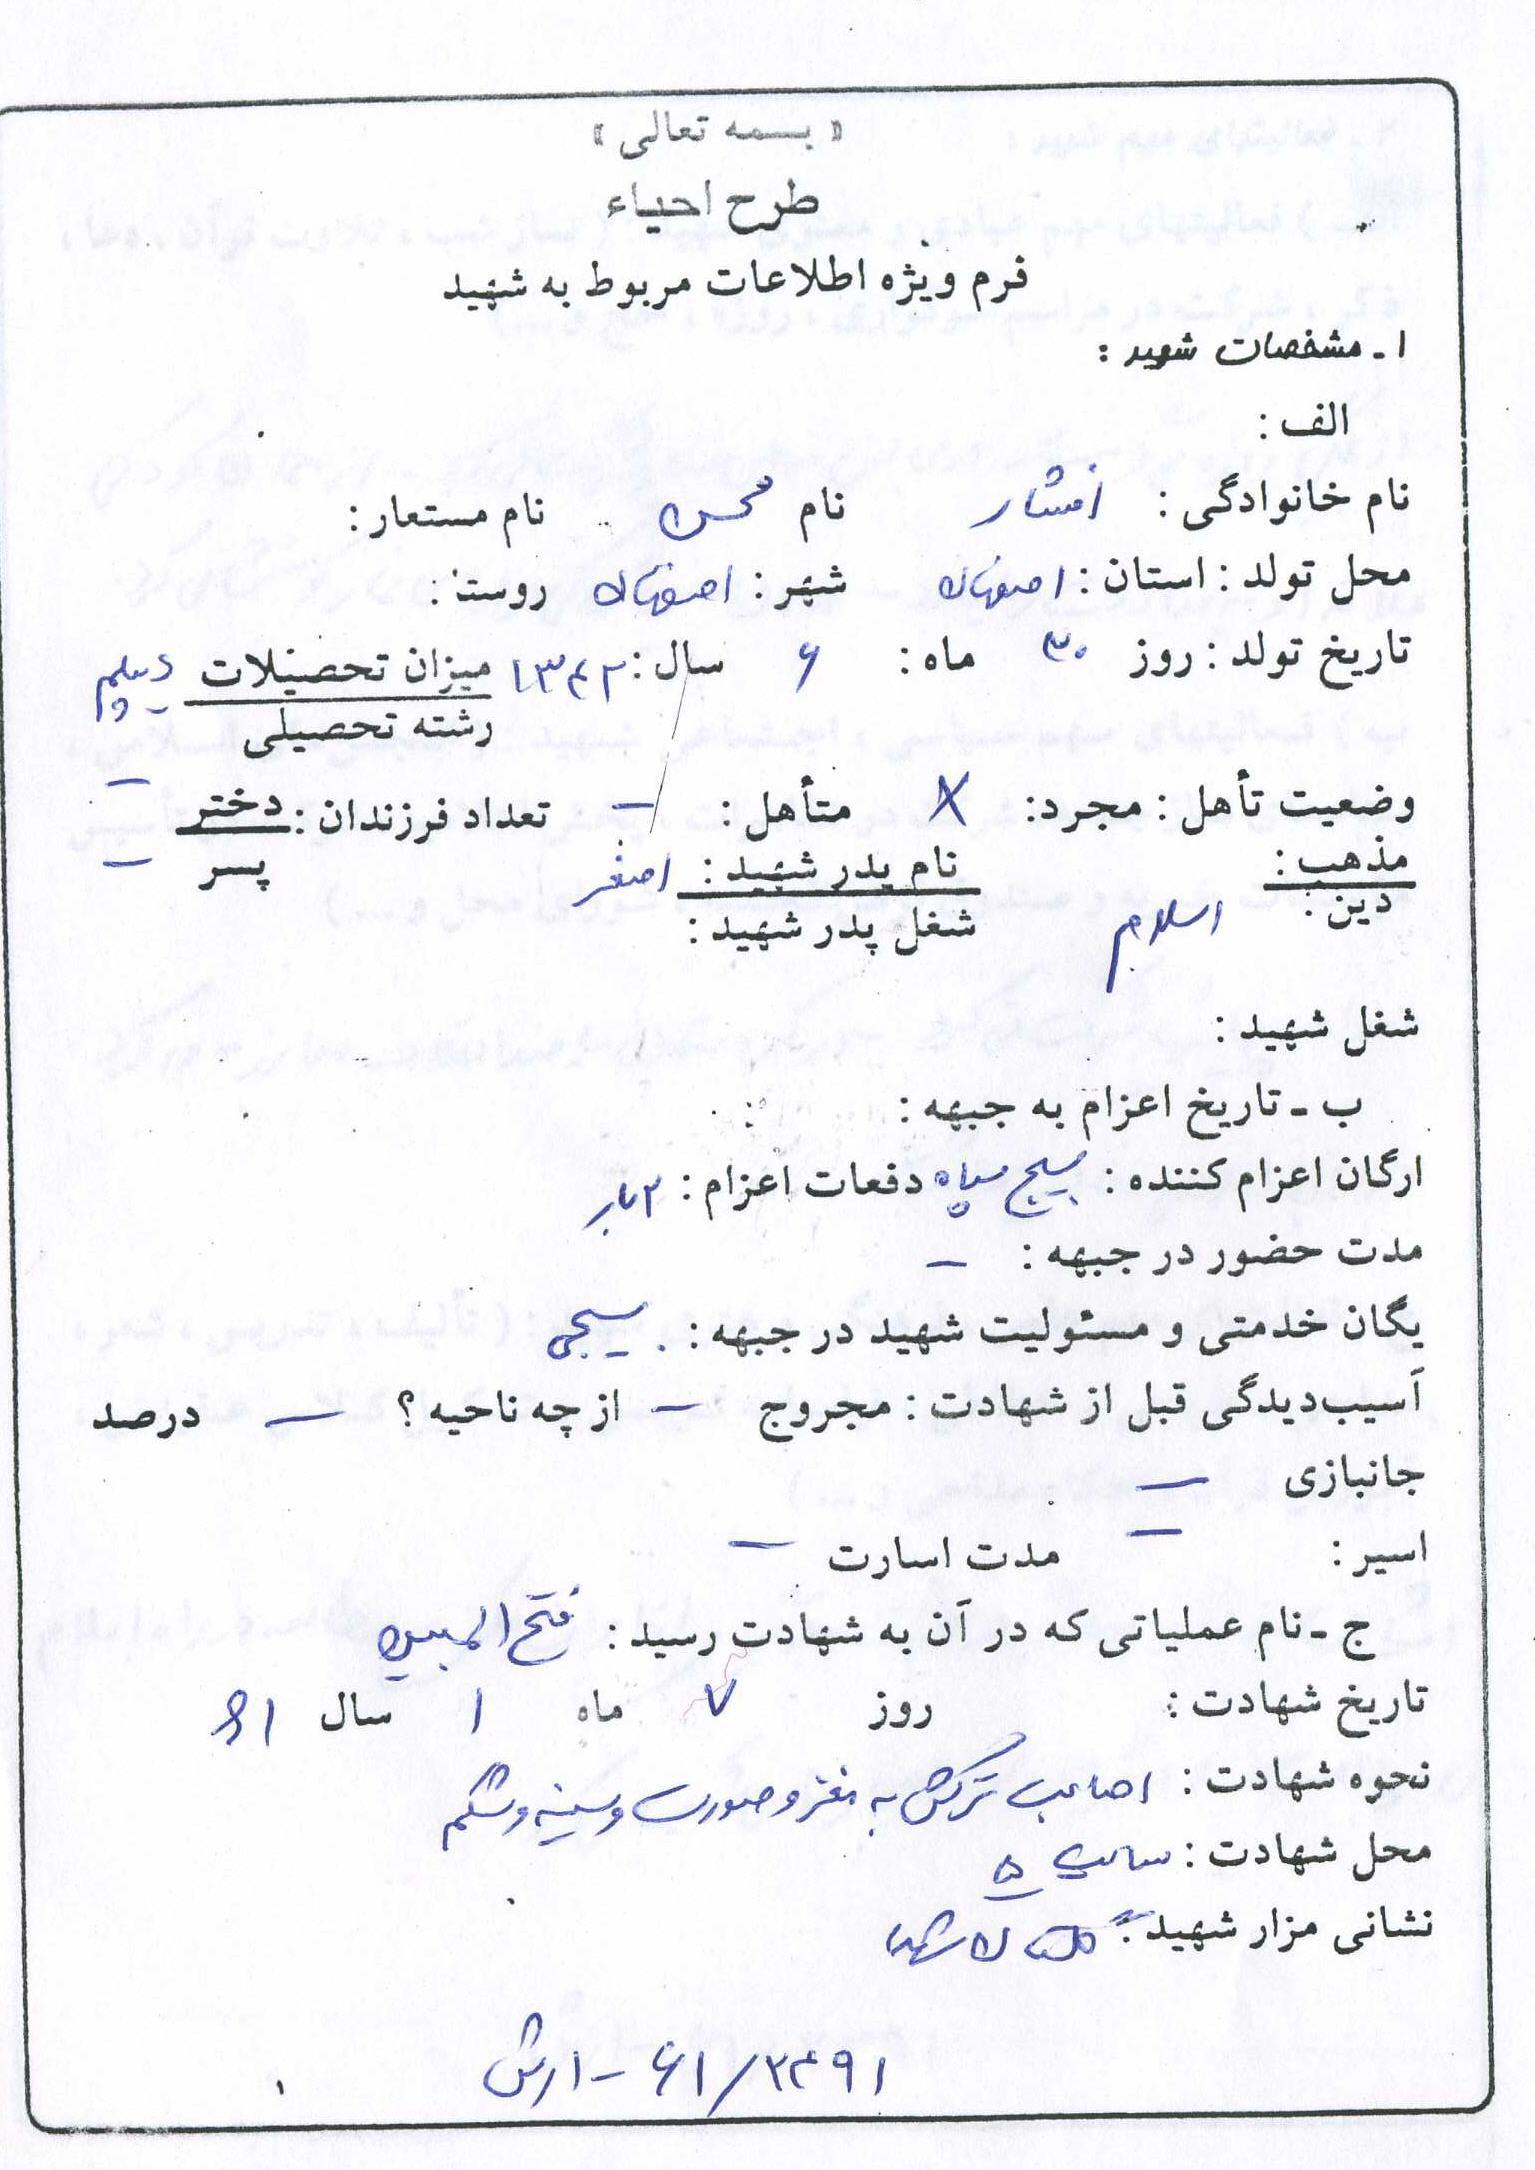 « بسمه تعالی »
طرح احیاء
فرم ویژه اطلاعات مربوط به شهید
۱ ـ مشخصات شهید :
الف :
نام خانوادگی : افشار نام محسن نام مستعار :
محل تولد : استان : اصفهان شهر : اصفهان روستا :
تاریخ تولد : روز ۳۰ ماه : ۶ سال : ۱۳۴۲ میزان تحصیلات دیپلم
رشته تحصیلی –
وضعیت تأهل : مجرد : X متأهل : – تعداد فرزندان : دختر
پسر –
مذهب : نام پدر شهید : اصغر
دین : اسلام شغل پدر شهید :
شغل شهید :
ب ـ تاریخ اعزام به جبهه :
ارگان اعزام کننده : بسیج سپاه دفعات اعزام : ۲ بار
مدت حضور در جبهه : –
یگان خدمتی و مسئولیت شهید در جبهه : بسیجی
آسیب‌دیدگی قبل از شهادت : مجروح – از چه ناحیه ؟ – درصد
جانبازی –
اسیر : – مدت اسارت –
ج ـ نام عملیاتی که در آن به شهادت رسید : فتح المبین
تاریخ شهادت : روز ۷ ماه ۱ سال ۶۱
نحوه شهادت : اصابت ترکش به مغز و صورت و سینه و شکم
محل شهادت : سایت ۵
نشانی مزار شهید : گلستان شهدا
۶۱/۲۴۹۱ – ارش